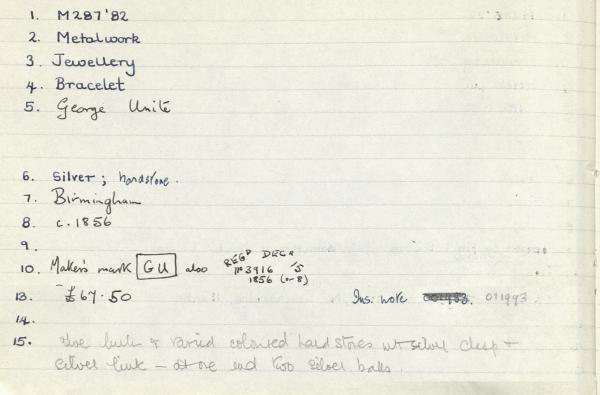 1. M287'82
2. Metalwork
3. Jewellery
4. Bracelet
5. George Unite
6. Silver; hardstone.
7. Birmingham
8. c.1856
9.
10. Maker's mark GU also REGD DECR 15 No 3916 1856 (or 8)
13. £67.50 Ins. note 011993
14.
15. five links of varied coloured hard stones wt silver clasp +
silver link – at one end two silver balls.